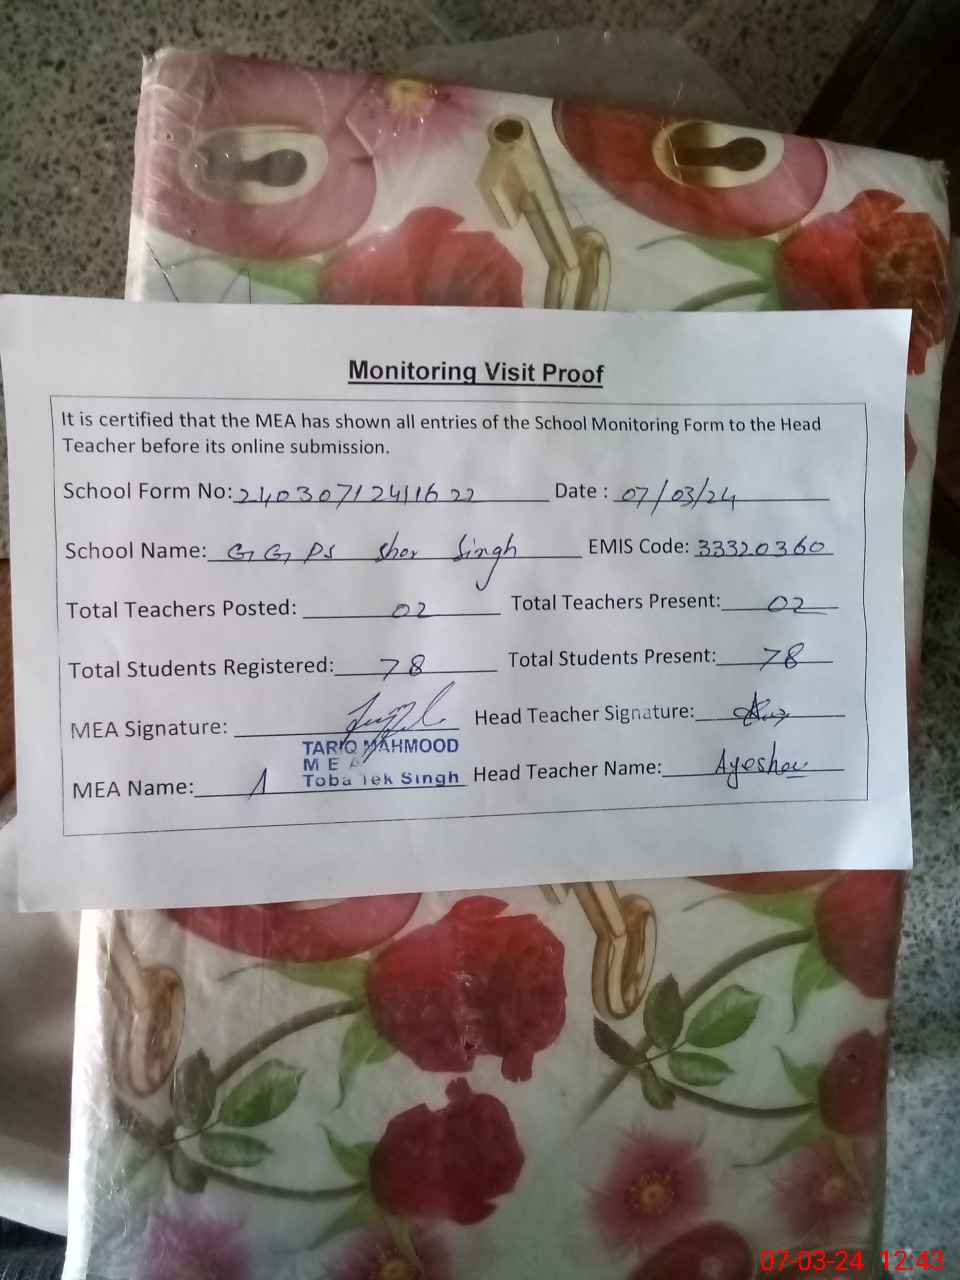 Monitoring Visit Proof
It is certified that the MEA has shown all entries of the School Monitoring Form to the Head
Teacher before its online submission.
School Form No: 24030712411622 Date : 07/03/24
School Name: GGPS Sher Singh EMIS Code: 33320360
Total Teachers Posted: 02 Total Teachers Present: 02
Total Students Registered: 78 Total Students Present: 78
MEA Signature: Head Teacher Signature:
TARIQ MAHMOOD
M E A
Toba Tek Singh
MEA Name: Head Teacher Name: Ayesha
07-03-24 12:43